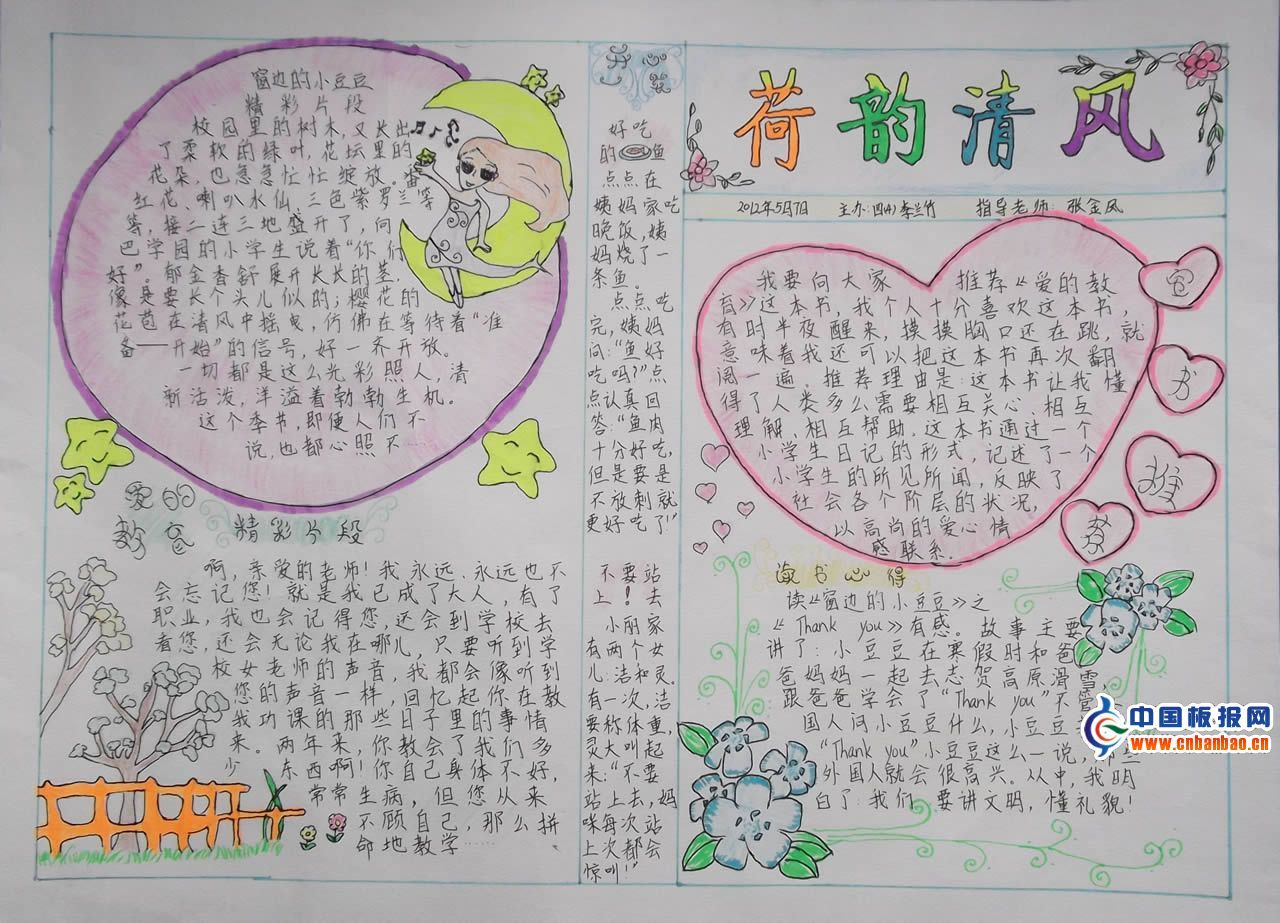 荷韵清风
2012年5月7日 主办:四(4)李兰竹 指导老师:张金凤
窗边的小豆豆
精彩片段
校园里的树木,又长出
了柔软的绿叶,花坛里的
花朵也急急忙忙绽放。番
红花、喇叭水仙、三色紫罗兰等
等,接二连三地盛开了,向
巴学园的小学生说着“你们
好”。郁金香舒展开长长的茎,
像是要长个头儿似的;樱花的
花苞在清风中摇曳,仿佛在等待着“准
备——开始”的信号,好一齐开放。
一切都是这么光彩照人,清
新活泼,洋溢着勃勃生机。
这个季节,即便人们不
说,也都心照不…
爱的
教育 精彩片段
啊,亲爱的老师!我永远、永远也不
会忘记您!就是我已成了大人,有了
职业,我也会记得您,还会到学校去
看您,还会无论我在哪儿,只要听到学
校女老师的声音,我都会像听到
您的声音一样,回忆起你在教
我功课的那些日子里的事情
来。两年来,你教会了我们多
少东西啊!你自己身体不好,
常常生病,但您从来
不顾自己,那么拼
命地教学……
开心
好吃
的鱼
点点在
姨妈家吃
晚饭,姨
妈烧了一
条鱼。
点点吃
完,姨妈
问:“鱼好
吃吗?”点
点认真回
答:“鱼肉
十分好吃,
但是要是
不放刺就
更好吃了!”
不要站
上!去
小丽家
有两个女
儿:洁和灵。
有一次,洁
要称体重,
灵大叫起
来:“不要
站上去,妈
咪每次站
上次都会
惊叫!”
我要向大家 推荐《爱的教
育》这本书,我个人十分喜欢这本书,
有时半夜醒来,摸摸胸口还在跳,就
意味着我还可以把这本书再次翻
阅一遍。推荐理由是:这本书让我懂
得了人类多么需要相互关心、相互
理解,相互帮助。这本书通过一个
小学生日记的形式,记述了一个
小学生的所见所闻,反映了
社会各个阶层的状况,
以高尚的爱心情
感联系。
书
推
荐
读书心得
读《窗边的小豆豆》之
《Thank you》有感。故事主要
讲了:小豆豆在寒假时和爸
爸妈妈一起去志贺高原滑雪
跟爸爸学会了“Thank you”不管
国人问小豆豆什么,小豆豆
“Thank you”小豆豆这么一说,那些
外国人就会很高兴。从中,我明
白了:我们要讲文明,懂礼貌!
中国板报网
www.cnbanbao.cn